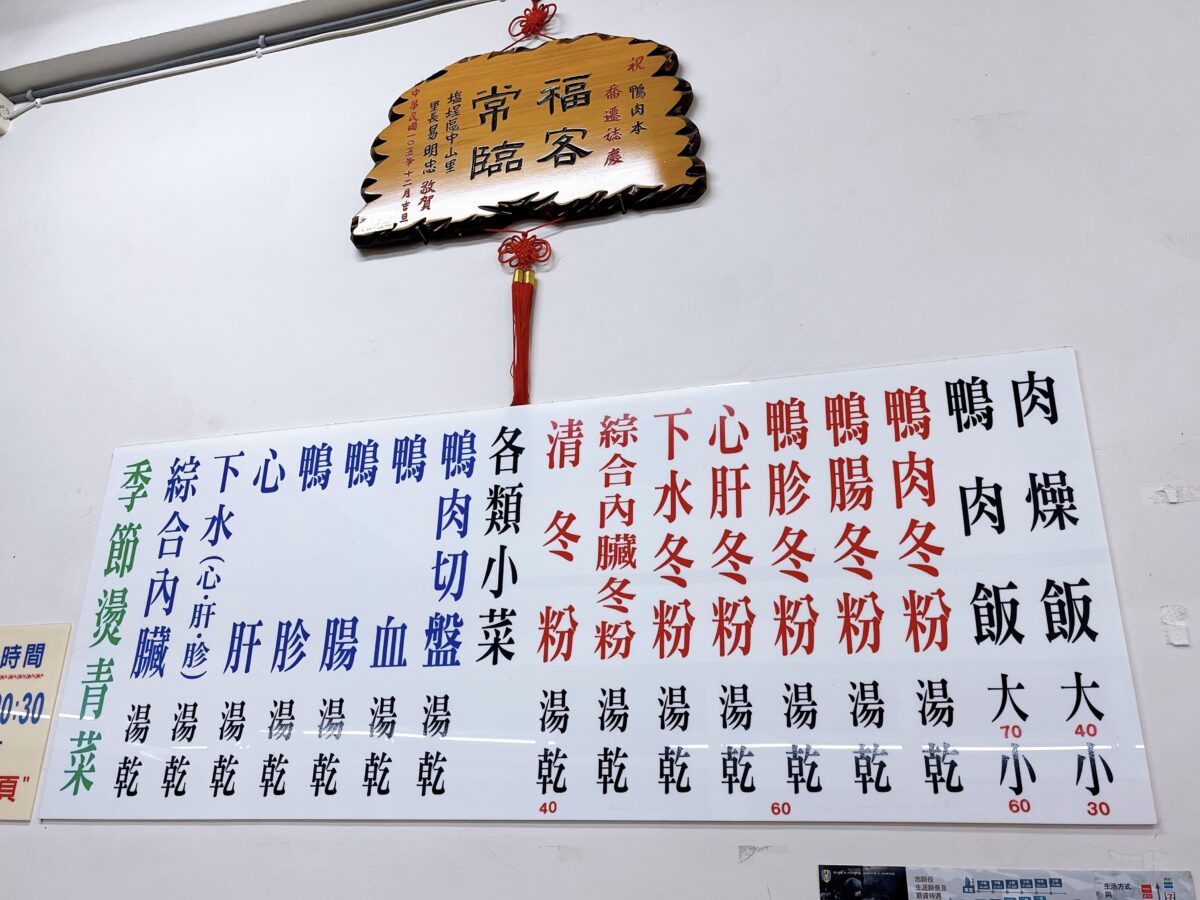 祝 鴨肉本
喬遷誌慶
福客
常臨
塩埕區中山里
里長易明忠 敬賀
中華民國一〇五年十二月吉旦
肉燥飯 大 40 小 30
鴨肉飯 大 70 小 60
鴨肉冬粉 湯 乾
鴨腸冬粉 湯 乾
鴨胗冬粉 湯 乾 60
心肝冬粉 湯 乾
下水冬粉 湯 乾
綜合內臟冬粉 湯 乾
清冬粉 湯 乾 40
各類小菜
鴨肉切盤 湯 乾
鴨血 湯 乾
鴨腸 湯 乾
鴨胗 湯 乾
心肝 湯 乾
下水(心·肝·胗) 湯 乾
綜合內臟 湯 乾
季節燙青菜
時間
0:30
志願役
生涯願景及
生活方式
與